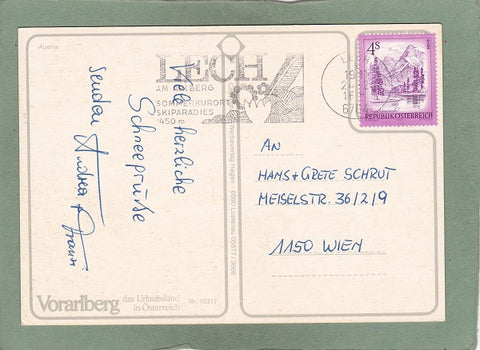 Austria
LECH
AM ARLBERG
SOMMERKURORT
SKIPARADIES
1450 m
4S
REPUBLIK ÖSTERREICH
Viele herzliche
Schneegrüße
senden Andrea + Franz
AN
HANS + GRETE SCHRUT
MEISELSTR. 36/2/9
1150 WIEN
Vorarlberg das Urlaubsland
in Österreich
Nr. 10217
6890 Lustenau 05577/2666